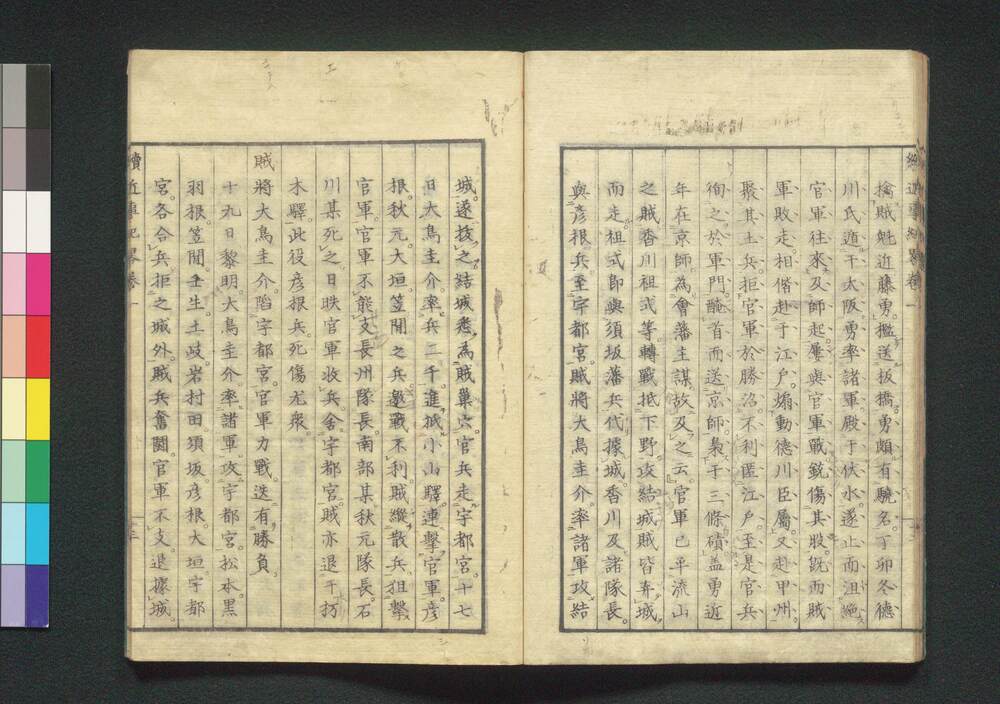 擒賊魁近藤勇。檻送板橋。勇頗有驍名。丁卯冬德
川氏遁。于大阪勇率諸軍殿于伏水。遂止而沮絶
官軍往來。及師起。屢與官軍戰。銃傷其股。既而賊
軍敗走。相偕赴于江戸。煽動德川臣屬。又赴甲州。
聚其土兵。拒官軍於勝沼。不利匿江戸。至是官兵
徇之於軍門。醃首而送京師。梟于三條磧。蓋勇近
年在京師。為會藩主謀。故及之云。官軍已平流山
之賊。香川祖式等轉戰抵下野。攻結城。賊皆弃城
而走。祖式即與須坂藩兵代據城。香川及諸隊長。
與彦根兵至宇都宮。賊將大鳥圭介。率諸軍攻結
城。遂拔之。結城悉為賊巢穴。官兵走宇都宮。十七
日大鳥圭介。率兵二千。進抵小山驛。連擊官軍。彦
根。秋元。大垣。笠間之兵。邀戰不利。賊縱散兵狙擊
官軍。官軍不能支。長州隊長。南部某秋元隊長。石
川某死之。日昳官軍收兵。舍宇都宮。賊亦退于打
木驛。此役彦根兵死傷尤衆
賊將大鳥圭介。陷宇都宮。官軍力戰。迭有勝負
十九日黎明。大鳥圭介。率諸軍。攻宇都宮。松本。黒
羽根。笠間。壬生。土岐。岩村田須坂。彦根。大垣宇都
宮。各合兵拒之城外。賊兵奮鬪。官軍不支。退據城。
續近事紀畧卷一